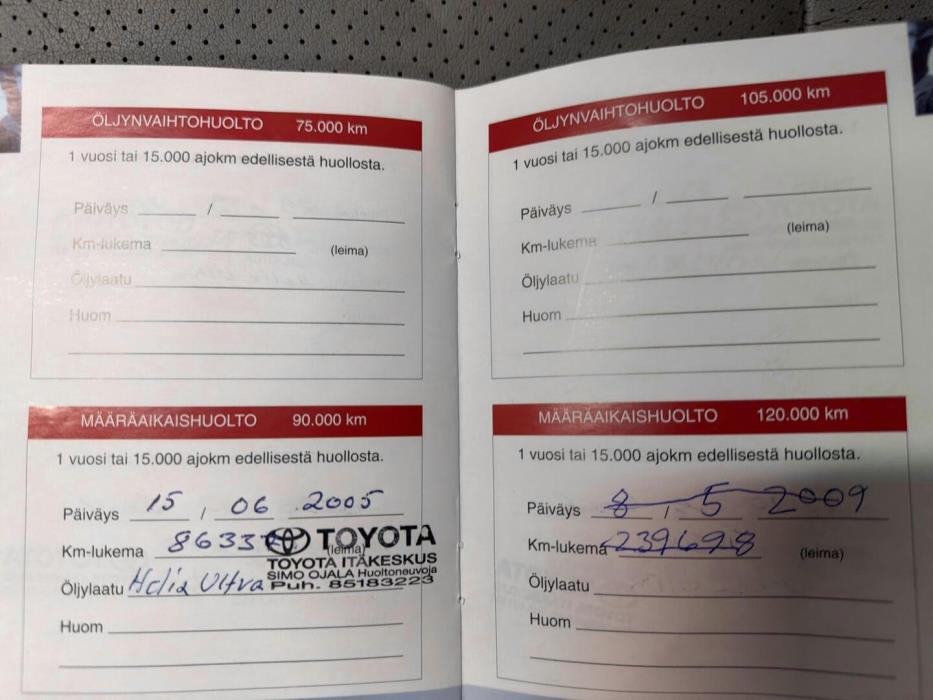 ÖLJYNVAIHTOHUOLTO 75.000 km
1 vuosi tai 15.000 ajokm edellisestä huollosta.
Päiväys /
Km-lukema (leima)
Öljylaatu
Huom
MÄÄRÄAIKAISHUOLTO 90.000 km
1 vuosi tai 15.000 ajokm edellisestä huollosta.
Päiväys 15 / 06 2005
Km-lukema 8633 (leima) TOYOTA
TOYOTA ITÄKESKUS
SIMO OJALA Huoltoneuvoja
Öljylaatu Helix Ultra Puh. 85183223
Huom
ÖLJYNVAIHTOHUOLTO 105.000 km
1 vuosi tai 15.000 ajokm edellisestä huollosta.
Päiväys /
Km-lukema (leima)
Öljylaatu
Huom
MÄÄRÄAIKAISHUOLTO 120.000 km
1 vuosi tai 15.000 ajokm edellisestä huollosta.
Päiväys 8 / 5 2009
Km-lukema 239698 (leima)
Öljylaatu
Huom